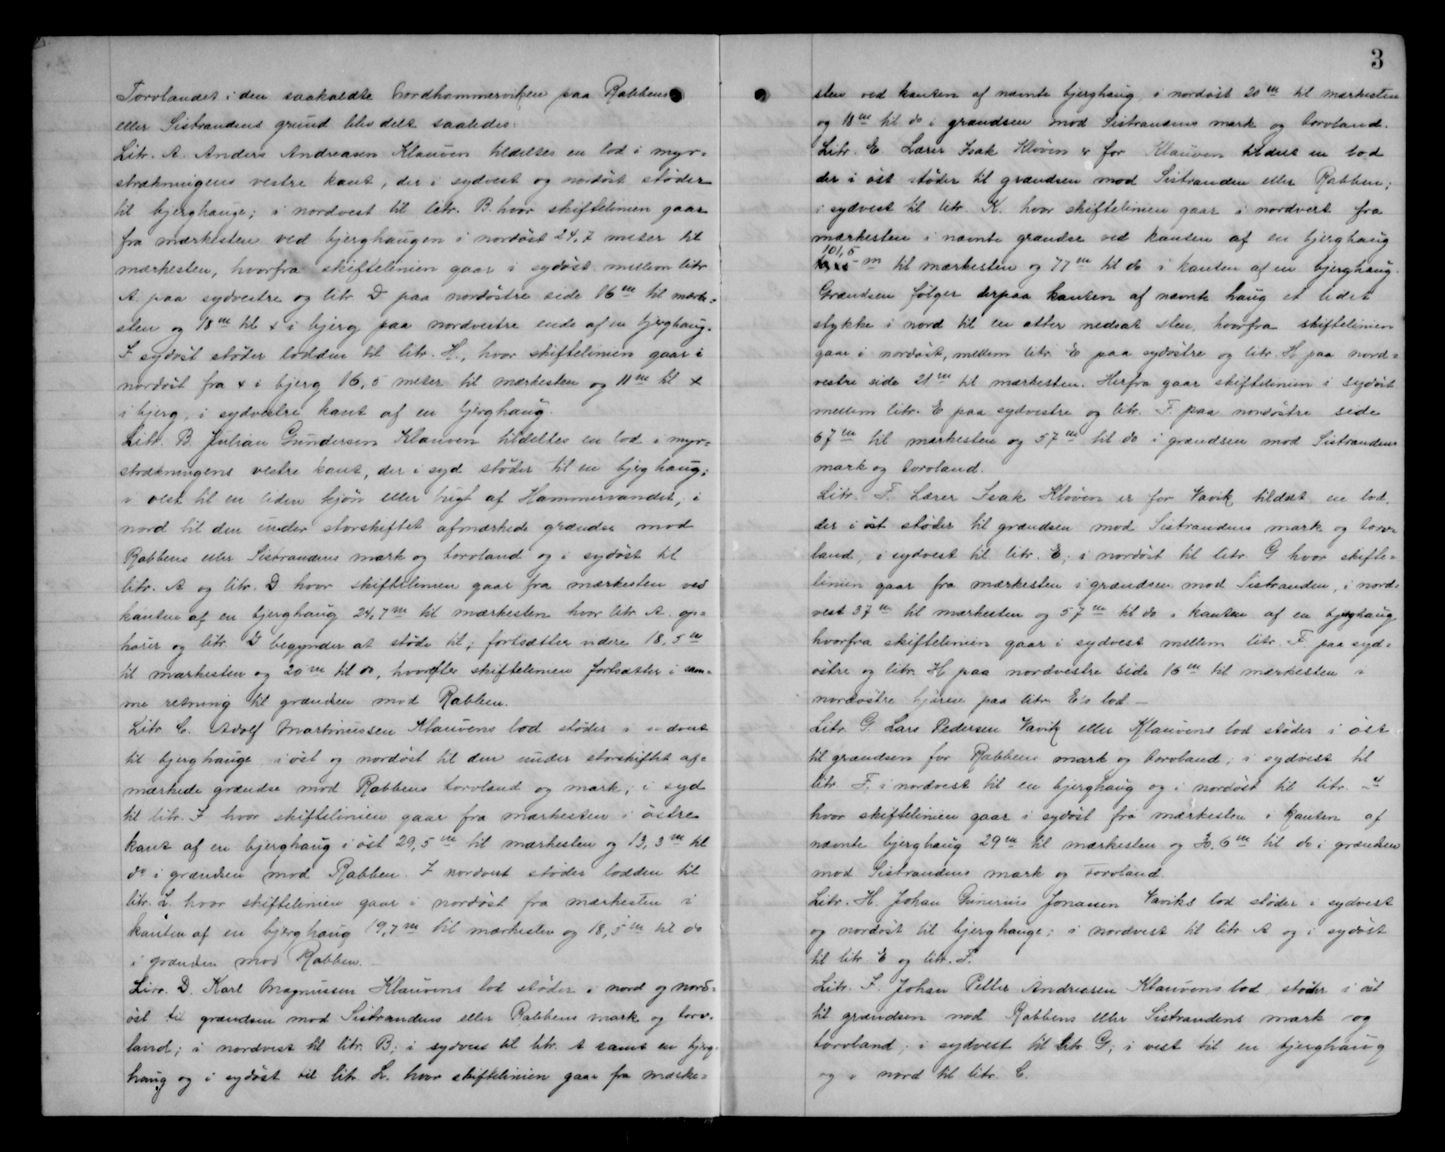 Torvlandet i den saakaldte Nordhammervikjen paa Rabbens
eller Sistrandens grund blev delt saaledes:
Litr. A. Anders Andreasen Klauven tildeltes en lod i myr-
strækningens vestre kant, der i sydvest og nordöst stöder
til bjerghauge; i nordvest til litr. B. hvor skiftelinien gaar
fra mærkesten ved bjerghaugen i nordöst 24,7 meter til
mærkesten, hvorfra skiftelinien gaar i sydöst mellem litr
A. paa sydvestre og litr. D paa nordöstre side 16 m til mærke-
sten og 18 m til x i bjerg paa nordvestre ende af en bjerghaug.
I sydöst stöder lodden til litr. H., hvor skiftelinien gaar i
nordöst fra x i bjerg 16,5 meter til mærkesten og 11 m til x
i bjerg, i sydvestre kant af en bjerghaug.
Litr. B. Julian Gundersen Klauven tildeltes en lod i myr-
strækningens vestre kant, der i syd stöder til en bjerghaug;
i vest til en liden kjön eller bugt af Hammervandet; i
nord til den under storskiftet afmærkede grændse mod
Rabbens eller Sistrandens mark og torvland og i sydöst til
litr. A og litr. D hvor skiftelinien gaar fra mærkesten ved
kanten af en bjerghaug 24,7 m til mærkesten hvor litr. A. op-
hörer og litr. D begynder at stöde til; fortsætter videre 18,5 m
til mærkesten og 20 m til do, hvorefter skiftelinien fortsætter i sam-
me retning til grændsen mod Rabben.
Litr. C. Adolf Martinussen Klauvens lod stöder i sydvest
til bjerghauge i öst og nordöst til den under storskiftet af-
mærkede grændse mod Rabbens torvland og mark; i syd
til litr. I hvor skiftelinien gaar fra mærkesten i östre
kant af en bjerghaug i öst 29,5 m til mærkesten og 13,3 m til
do i grændsen mod Rabben. I nordvest stöder lodden til
litr. L. hvor skiftelinien gaar i nordöst fra mærkesten i
kanten af en bjerghaug 19,7 m til mærkesten og 18,5 m til do
i grændsen mod Rabben.
Litr. D. Karl Magnussen Klauvens lod stöder i nord og nord-
öst til grændsen mod Sistrandens eller Rabbens mark og torv-
land; i nordvest til litr. B; i sydvest til litr. A samt en bjerg-
haug og i sydöst til litr. L. hvor skiftelinien gaar fra mærke-
3
sten ved kanten af nævnte bjerghaug, i nordöst 20 m til mærkesten
og 18 m til do i grændsen mod Sistrandens mark og torvland.
Litr. E. Lærer Isak Klöven er for Klauven tildelt en lod
der i öst stöder til grændsen mod Sistranden eller Rabben;
i sydvest til litr. K. hvor skiftelinien gaar i nordvest fra
mærkesten i nævnte grændse ved kanten af en bjerghaug
101,5 m til mærkesten og 77 m til do i kanten af en bjerghaug.
Grændsen fölger derpaa kanten af nævnte haug et lidet
stykke i nord til en atter nedsat sten, hvorfra skiftelinien
gaar i nordöst, mellem litr. E paa sydöstre og litr. H paa nord-
vestre side 21 m til mærkesten. Herfra gaar skiftelinien i sydöst
mellem litr. E paa sydvestre og litr. F. paa nordöstre side
67 m til mærkesten og 57 m til do i grændsen mod Sistrandens
mark og torvland.
Litr. F. Lærer Isak Klöven er for Vavik tildelt en lod
der i öst stöder til grændsen mod Sistrandens mark og torv-
land, i sydvest til litr. E; i nordöst til litr. G hvor skifte-
linien gaar fra mærkesten i grændsen mod Sistranden, i nord-
vest 37 m til mærkesten og 57 m til do i kanten af en bjerghaug
hvorfra skiftelinien gaar i sydvest mellem litr. F paa syd-
östre og litr. H paa nordvestre side 16 m til mærkesten i
nordöstre hjörne paa litr. E's lod —
Litr. G. Lars Pedersen Vavik eller Klauvens lod stöder i öst
til grændsen for Rabbens mark og torvland; i sydvest til
litr. F. i nordvest til en bjerghaug og i nordöst til litr.
hvor skiftelinien gaar i sydöst fra mærkesten i kanten af
nævnte bjerghaug 29 m til mærkesten og 6 m til do i grændsen
mod Sistrandens mark og Torvland.
Litr. H. Johan Gunerius Jonassen Vaviks lod stöder i sydvest
og nordöst til bjerghauge; i nordvest til litr A og i sydöst
til litr. E og litr. F.
Litr. I. Johan Petter Andreasen Klauvens lod, stöder i öst
til grændsen mod Rabbens eller Sistrandens mark og
torvland; i sydvest til litr G; i vest til en bjerghaug
og i nord til litr. C.